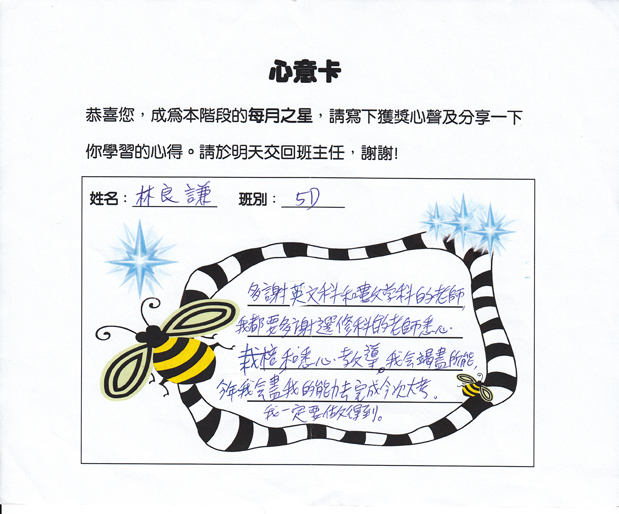 心意卡
恭喜您，成為本階段的每月之星，請寫下獲獎心聲及分享一下
你學習的心得。請於明天交回班主任，謝謝!
姓名：林良謙 班別：5D
多謝英文科和數學科的老師，
我都要多謝選修科的老師悉心
栽棓和悉心教導，我會竭盡所能，
今年我會盡我的能力去完成今次大考。
我一定要做得到。